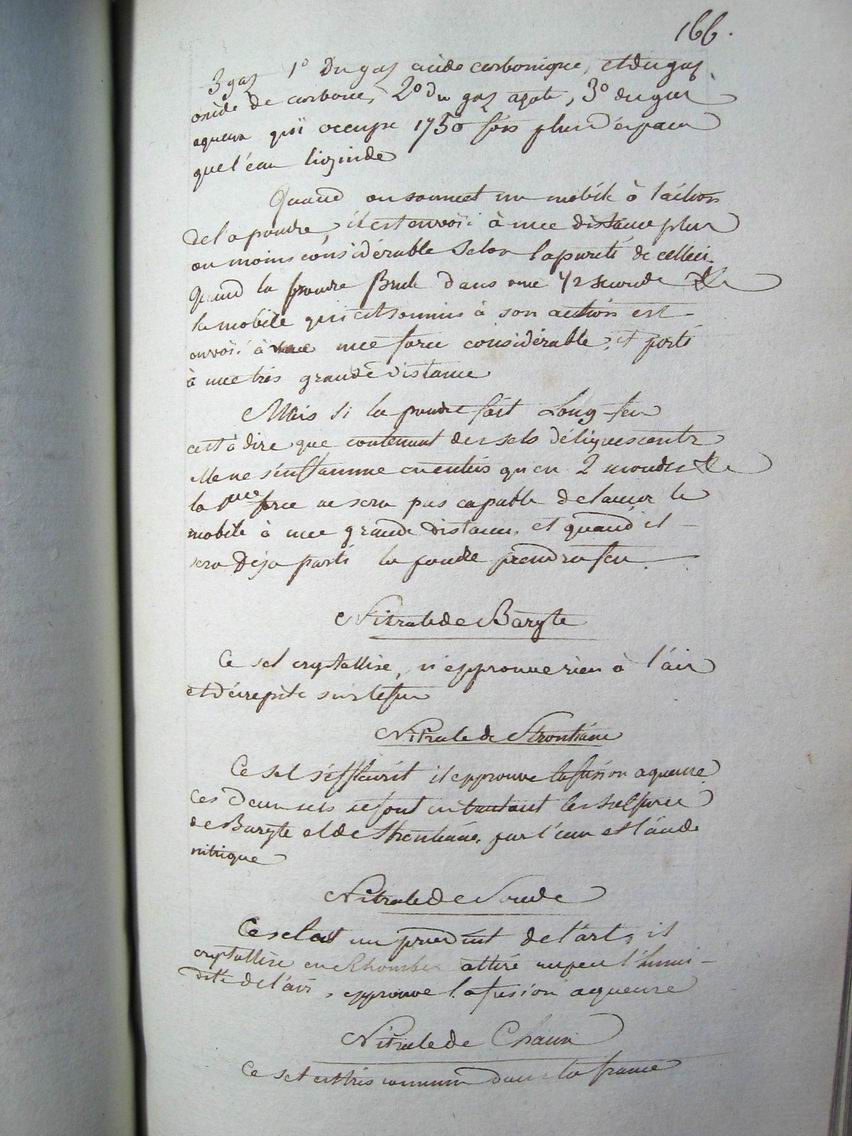 166.
3 gaz 1° Du gaz acide carbonique, et du gaz
oxide de carbone, 2° du gaz azote, 3° du gaz
aqueux qui occupe 1750 fois plus d'espace
que l'eau liquide
Quand on soumet un mobile à l'action
de la poudre, il est envoié à une distance plus
ou moins considérable selon la pureté de celleci.
Quand la poudre Brule dans une 1/2 seconde
le mobile qui est soumis à son action est
envoié à une force considérable, et porté
à une très grande distance
Mais si la poudre fait Long feu
cest à dire que contenant des sels déliquescents
elle ne s'enflamme en entier qu'en 2 secondes
la force ne sera pas capable de lancer le
mobile à une grande distance, et quand il
sera Déja parti la poudre prendra feu.
Nitrate de Baryte
Ce sel crystallise, n'epprouve rien à l'air
et décrepite sur le feu
Nitrate de Strontiane
Ce sel s'effleurit il epprouve la fusion aqueuse
Ces Deux sels se font en traitant les sulfures
de Baryte et de Strontiane, par l'eau et l'acide
nitrique
Nitrate de Soude
Ce sel est un produit de l'art, il
crystallise en Rhombes attire un peu l'humi-
dité de l'air, epprouve la fusion aqueuse
Nitrate de Chaux
Ce sel est très commun dans la france